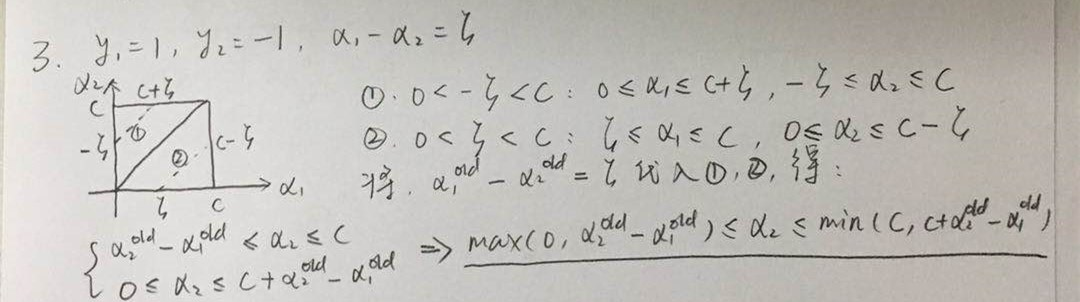 3. y₁=1, y₂=-1, α₁-α₂=ζ
α₂
C
C+ζ
①
-ζ
②
C-ζ
ζ
C
α₁
①. 0<-ζ<C: 0≤α₁≤C+ζ, -ζ≤α₂≤C
②. 0<ζ<C: ζ≤α₁≤C, 0≤α₂≤C-ζ
将 α₁ᵒˡᵈ-α₂ᵒˡᵈ=ζ 代入①,②,得:
{ α₂ᵒˡᵈ-α₁ᵒˡᵈ≤α₂≤C
0≤α₂≤C+α₂ᵒˡᵈ-α₁ᵒˡᵈ
=> max(0, α₂ᵒˡᵈ-α₁ᵒˡᵈ)≤α₂≤min(C, C+α₂ᵒˡᵈ-α₁ᵒˡᵈ)